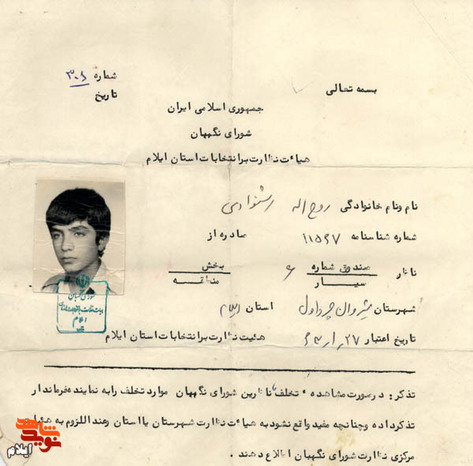 بسمه تعالی
شماره ۳۰۶
تاریخ
جمهوری اسلامی ایران
شورای نگهبان
هیات نظارت بر انتخابات استان ایلام
نام ونام خانوادگی روح اله رشنوادی
شماره شناسنامه ۱۱۵۴۷ صادره از
ناظر صندوق شماره ۶ بخش
سیار منطقه
شهرستان شیروان چرداول استان ایلام
تاریخ اعتبار ۲۷
هیئت نظارت بر انتخابات استان ایلام
شورای نگهبان
ایلام
تذکر : درصورت مشاهده تخلف ناظرین شورای نگهبان موارد تخلف را به نماینده فرماندار
تذکر داده و چنانچه مفید واقع نشود به هیات نظارت شهرستان یا استان و عند اللزوم به هیات
مرکزی نظارت شورای نگهبان اطلاع دهند .
نوید شاهد
ایلام